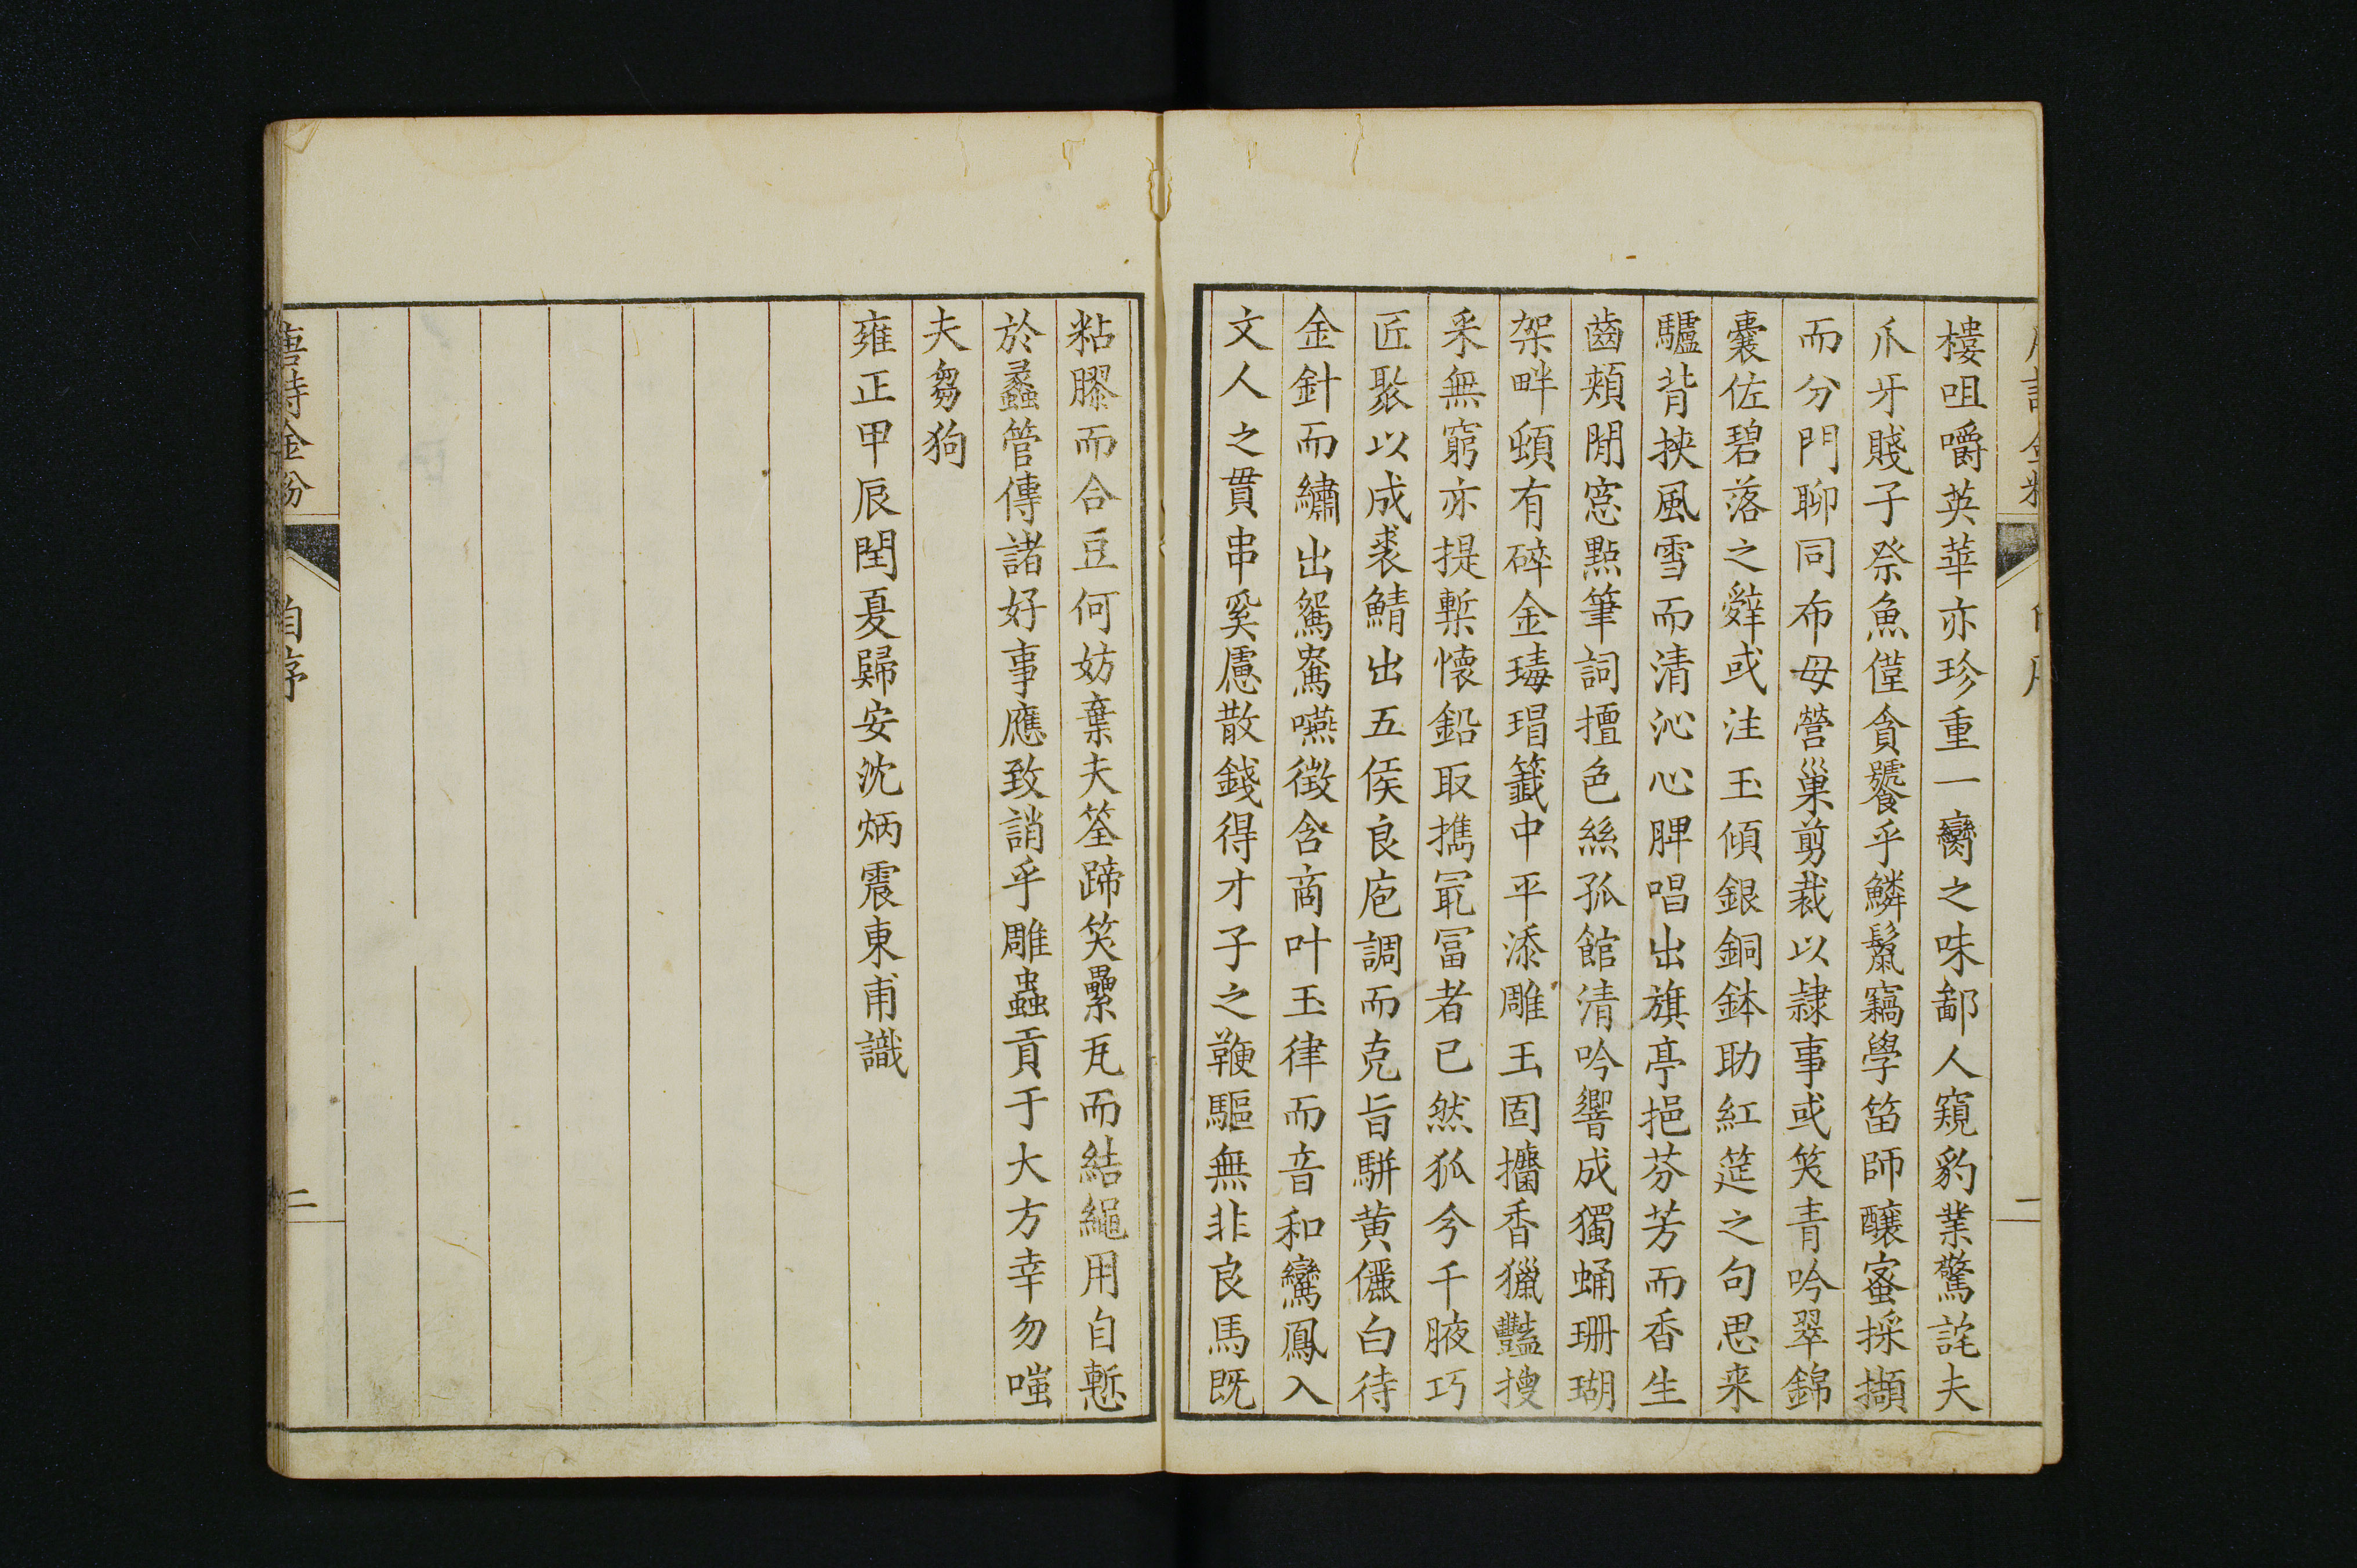 樓咀嚼英華亦珍重一臠之味鄙人窺豹業驚詫夫
爪牙賤子祭魚僅貪饕乎鱗鬣竊學笛師釀蜜採擷
而分門聊同布母營巢剪裁以隷事或笑青吟翠錦
囊佐碧落之辭或注玉傾銀銅鉢助紅筵之句思来
驢背挟風雪而清沁心脾唱出旗亭挹芬芳而香生
齒頰閒窓點筆詞擅色絲孤館清吟響成獨蛹珊瑚
架畔頓有碎金瑇瑁籤中平添雕玉固擂香獵豔搜
采無窮亦提槧懐鉛取擕冣冨者已然狐兮千腋巧
匠聚以成裘鯖出五侯良庖調而克旨駢黄儷白待
金針而繡出鴛鴦嚥徴含商叶玉律而音和鸞鳳入
文人之貫串奚慮散錢得才子之鞭驅無非良馬既
粘膠而合豆何妨棄夫筌蹄笑纍瓦而結繩用自慙
於蠡管傳諸好事應致誚乎雕蟲貢于大方幸勿嗤
夫芻狗
雍正甲辰閏夏歸安沈炳震東甫識
唐詩金粉
自序
二